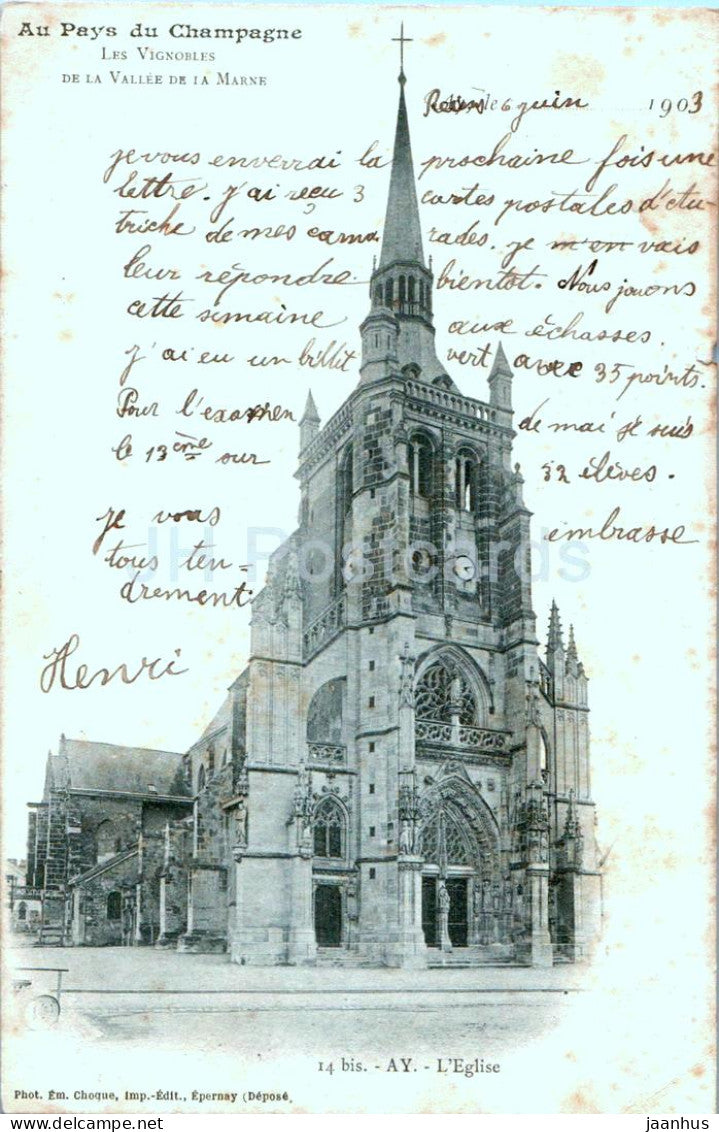 Au Pays du Champagne
Les Vignobles
de la Vallée de la Marne
Reims le 6 juin 1903
je vous enverrai la prochaine fois une
lettre. j'ai reçu 3 cartes postales d'Au-
triche de mes cama rades. je m'en vais
leur répondre bientot. Nous jouons
cette semaine aux échasses.
j'ai eu un billit vert avec 35 points.
Pour l'examen de mai je suis
le 13ème sur 32 élèves.
je vous embrasse
tous ten=
drement.
Henri
JH Postcards
14 bis. - AY. - L'Eglise
Phot. Ém. Choque, Imp.-Édit., Épernay (Déposé,
delcampe.net
jaanhus